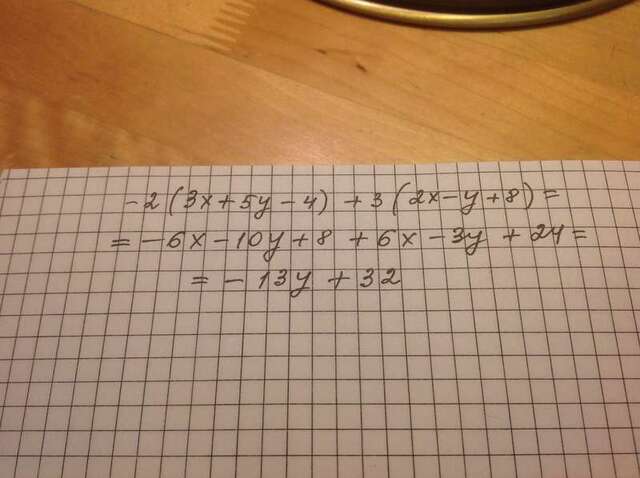 -2(3x+5y-4) +3(2x-y+8)=
=-6x-10y+8 +6x-3y+24=
=-13y+32